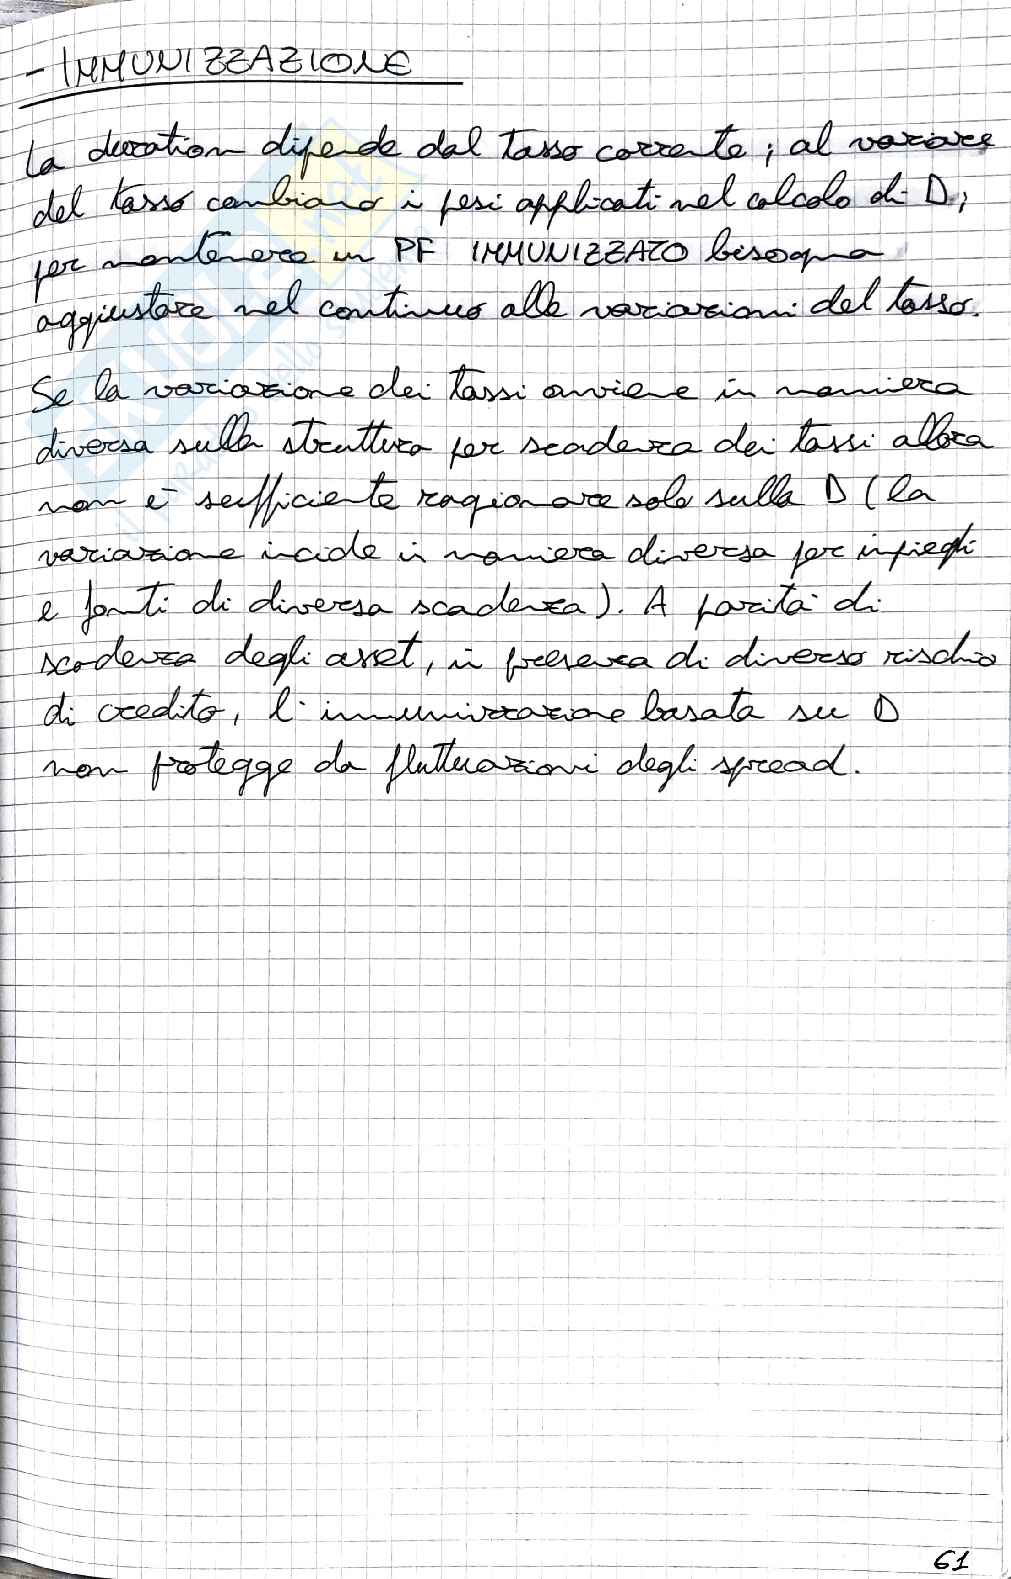 - IMMUNIZZAZIONE
La duration dipende dal tasso corrente; al variare
del tasso cambiano i pesi applicati nel calcolo di D;
per mantenere un PF IMMUNIZZATO bisogna
aggiustare nel continuo alle variazioni del tasso.
Se la variazione dei tassi avviene in maniera
diversa sulla struttura per scadenza dei tassi allora
non è sufficiente ragionare solo sulla D (la
variazione incide in maniera diversa per impieghi
e fonti di diversa scadenza). A parità di
scadenza degli asset, in presenza di diverso rischio
di credito, l'immunizzazione basata su D
non protegge da fluttuazioni degli spread.
61